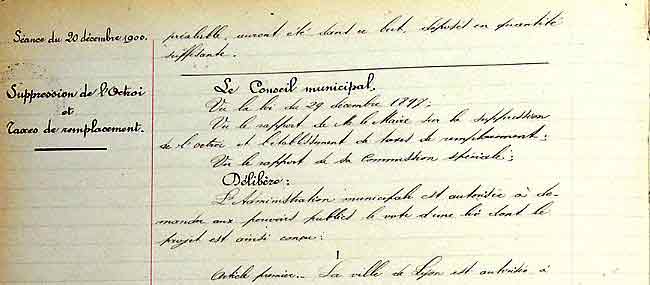 Séance du 20 décembre 1900.
préalable, auront été dans ce but, déposés en quantité
suffisante.
Suppression de l'Octroi
et
Taxes de remplacement.
Le Conseil municipal.
Vu la loi du 29 décembre 1897.
Vu le rapport de M. le Maire sur la suppression
de l'octroi et l'établissement de taxes de remplacement;
Vu le rapport de sa Commission spéciale;
Délibère:
L'Administration municipale est autorisée à de-
mander aux pouvoirs publics le vote d'une loi dont le
projet est ainsi conçu:
1
Article premier. _ La ville de Lyon est autorisée à